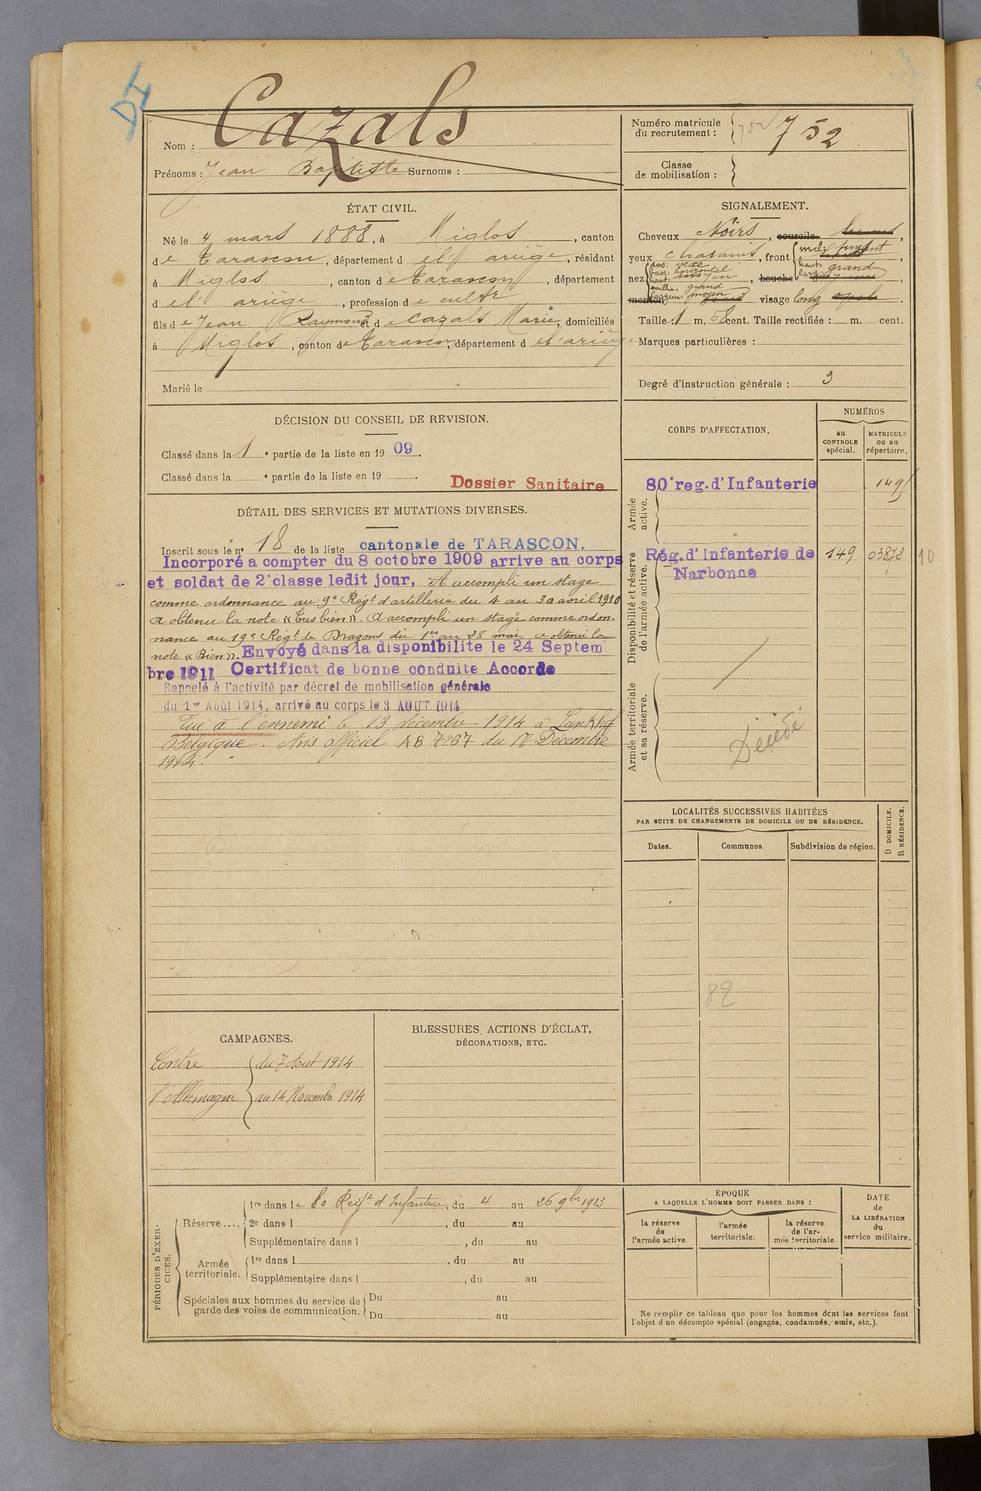 DI
Nom : Cazals
Prénoms : Jean Baptiste Surnoms :
Numéro matricule du recrutement : 752
Classe de mobilisation :
ÉTAT CIVIL.
Né le 4 mars 1888, à Miglos, canton
de Tarascon, département d el' ariège, résidant
à Miglos, canton de Tarascon, département
d el' ariège, profession de cultr
fils de Jean Raymond et de Cazals Marie, domiciliés
à Miglos, canton de Tarascon, département d el'ariège
Marié le
SIGNALEMENT.
Cheveux Noirs, sourcils
yeux chatains, front incl: fuyant
haut: grand
nez dos: base: horizontal haut: moyen, bouche
menton visage long
Taille 1 m. 58 cent. Taille rectifiée : m. cent.
Marques particulières :
Degré d'instruction générale : 3
DÉCISION DU CONSEIL DE REVISION.
Classé dans la 1e partie de la liste en 1909.
Classé dans la e partie de la liste en 19 .
Dossier Sanitaire
CORPS D'AFFECTATION.
NUMÉROS
au CONTROLE spécial.
MATRICULE ou au répertoire.
Armée active.
80e reg. d'Infanterie 149
Disponibilité et réserve de l'armée active.
Rég. d'Infanterie de Narbonne 149 03878 10
Armée territoriale et sa réserve.
Décédé
DÉTAIL DES SERVICES ET MUTATIONS DIVERSES.
Inscrit sous le no 18 de la liste cantonale de TARASCON.
Incorporé a compter du 8 octobre 1909 arrive au corps
et soldat de 2e classe ledit jour, A accompli un stage
comme ordonnance au 9e Régt d'artillerie du 4 au 30 avril 1910
a obtenu la note « très bien ». A accompli un stage comme ordon-
nance au 19e Régt de Dragons du 1er au 28 mai, a obtenu la
note « Bien ». Envoyé dans la disponibilite le 24 Septem
bre 1911 Certificat de bonne conduite Accorde
Rappelé à l'activité par décret de mobilisation générale
du 1er Août 1914, arrivé au corps le 3 AOUT 1914
Tué à l'ennemi le 13 décembre 1914 à
Belgique. Avis officiel AB 7267 du 17 Décembre
1914.
LOCALITÉS SUCCESSIVES HABITÉES
PAR SUITE DE CHANGEMENTS DE DOMICILE OU DE RÉSIDENCE.
Dates. Communes Subdivision de région. D DOMICILE. R RÉSIDENCE.
82
CAMPAGNES.
Contre du 7 Aout 1914
l'Allemagne au 14 Novembre 1914
BLESSURES, ACTIONS D'ÉCLAT,
DÉCORATIONS, ETC.
PÉRIODES D'EXERCICES.
Réserve....
1re dans le 80 Régt d'Infanterie, du 4 au 26 9bre 1913
2e dans l , du au
Supplémentaire dans l , du au
Armée territoriale.
1re dans l , du au
Supplémentaire dans l , du au
Spéciales aux hommes du service de garde des voies de communication.
Du au
Du au
EPOQUE
A LAQUELLE L'HOMME DOIT PASSER DANS :
la réserve de l'armée active.
l'armée territoriale.
la réserve de l'armée territoriale.
DATE de LA LIBÉRATION du service militaire.
Ne remplir ce tableau que pour les hommes dont les services font
l'objet d'un décompte spécial (engagés, condamnés, omis, etc.).